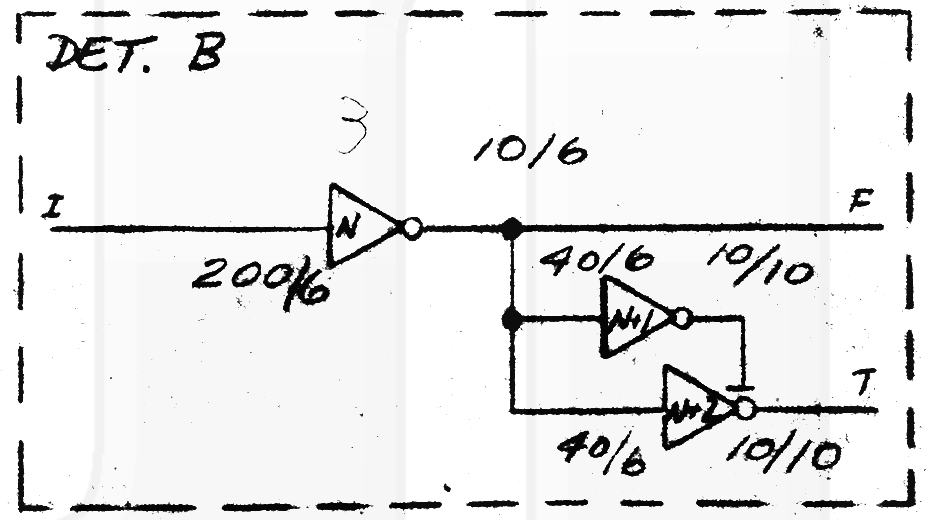 DET. B
3
10/6
I
N
F
200/6
40/6
10/10
N+1
T
N+2
40/6
10/10